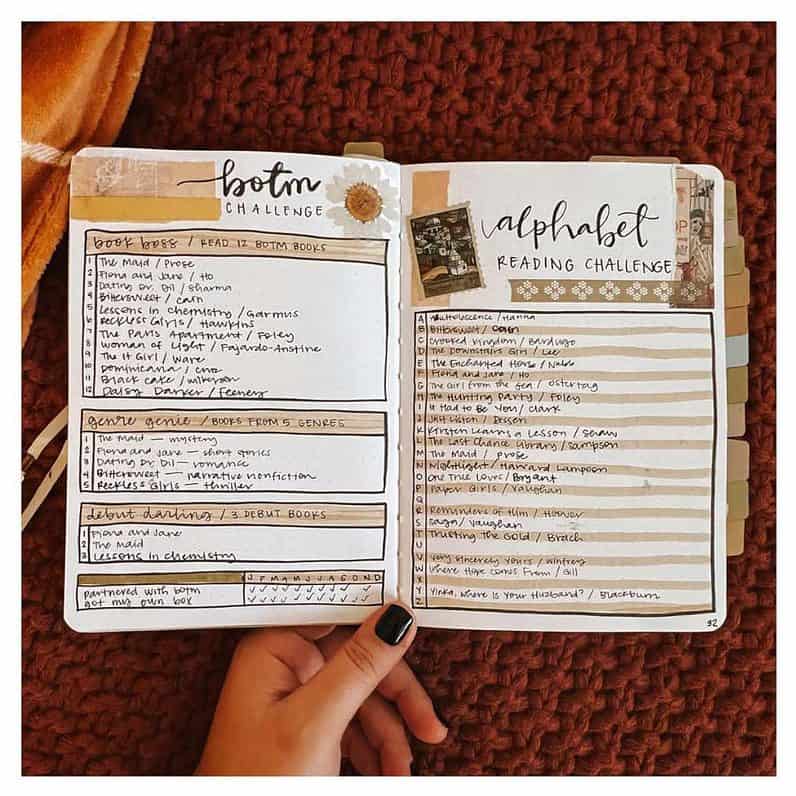 botm
CHALLENGE
book boss / READ 12 BOTM BOOKS
1 The Maid / Prose
2 Fiona and Jane / Ho
3 Dating Dr. Dil / Sharma
4 Bittersweet / Cain
5 Lessons in Chemistry / Garmus
6 Reckless Girls / Hawkins
7 The Paris Apartment / Foley
8 Woman of Light / Fajardo-Anstine
9 The It Girl / Ware
10 Dominicana / Cruz
11 Black Cake / Wilkerson
12 Daisy Darker / Feeney
genre genie / BOOKS FROM 5 GENRES
1 The Maid — mystery
2 Fiona and Jane — short stories
3 Dating Dr. Dil — romance
4 Bittersweet — narrative nonfiction
5 Reckless Girls — thriller
debut darling / 3 DEBUT BOOKS
1 Fiona and Jane
2 The Maid
3 Lessons in Chemistry
J F M A M J J A S O N D
partnered with botm
got my own box
alphabet
READING CHALLENGE
A / Hanna
B Bittersweet / Cain
C Crooked Kingdom / Bardugo
D The Downstairs Girl / Lee
E The Enchanted Horse / Nabb
F Fiona and Jane / Ho
G The Girl from the Sea / Ostertag
H The Hunting Party / Foley
I It Had to Be You / Clark
J Just Listen / Dessen
K Kirsten Learns a Lesson / Shaw
L The Last Chance Library / Sampson
M The Maid / Prose
N Nightlight / Harvard Lampoon
O One True Loves / Bryant
P Paper Girls / Vaughan
Q
R Reminders of Him / Hoover
S Saga / Vaughan
T Trusting the Gold / Brach
U
V Very Sincerely Yours / Winfrey
W Where Hope Comes From / Gill
X
Y Yinka, Where is Your Husband? / Blackburn
Z
32